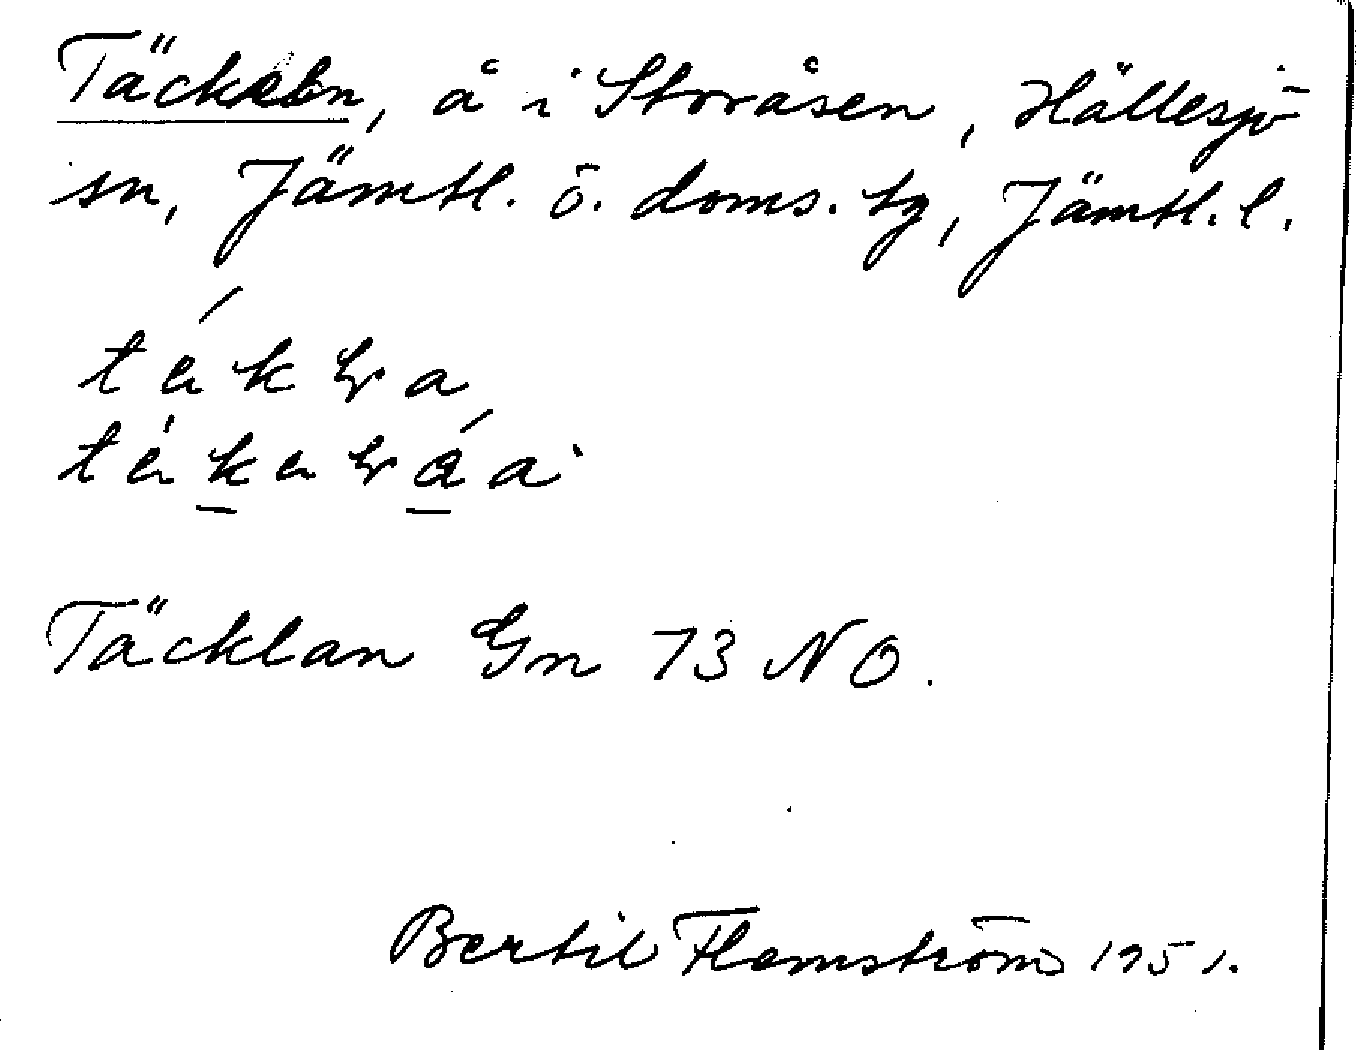 Täckeln, å i Storåsen, Hällesjö
sn, Jämtl. ö. doms. tg, Jämtl. l.
Täcklan Gn 73 NO.
Bertil Flemström 1951.